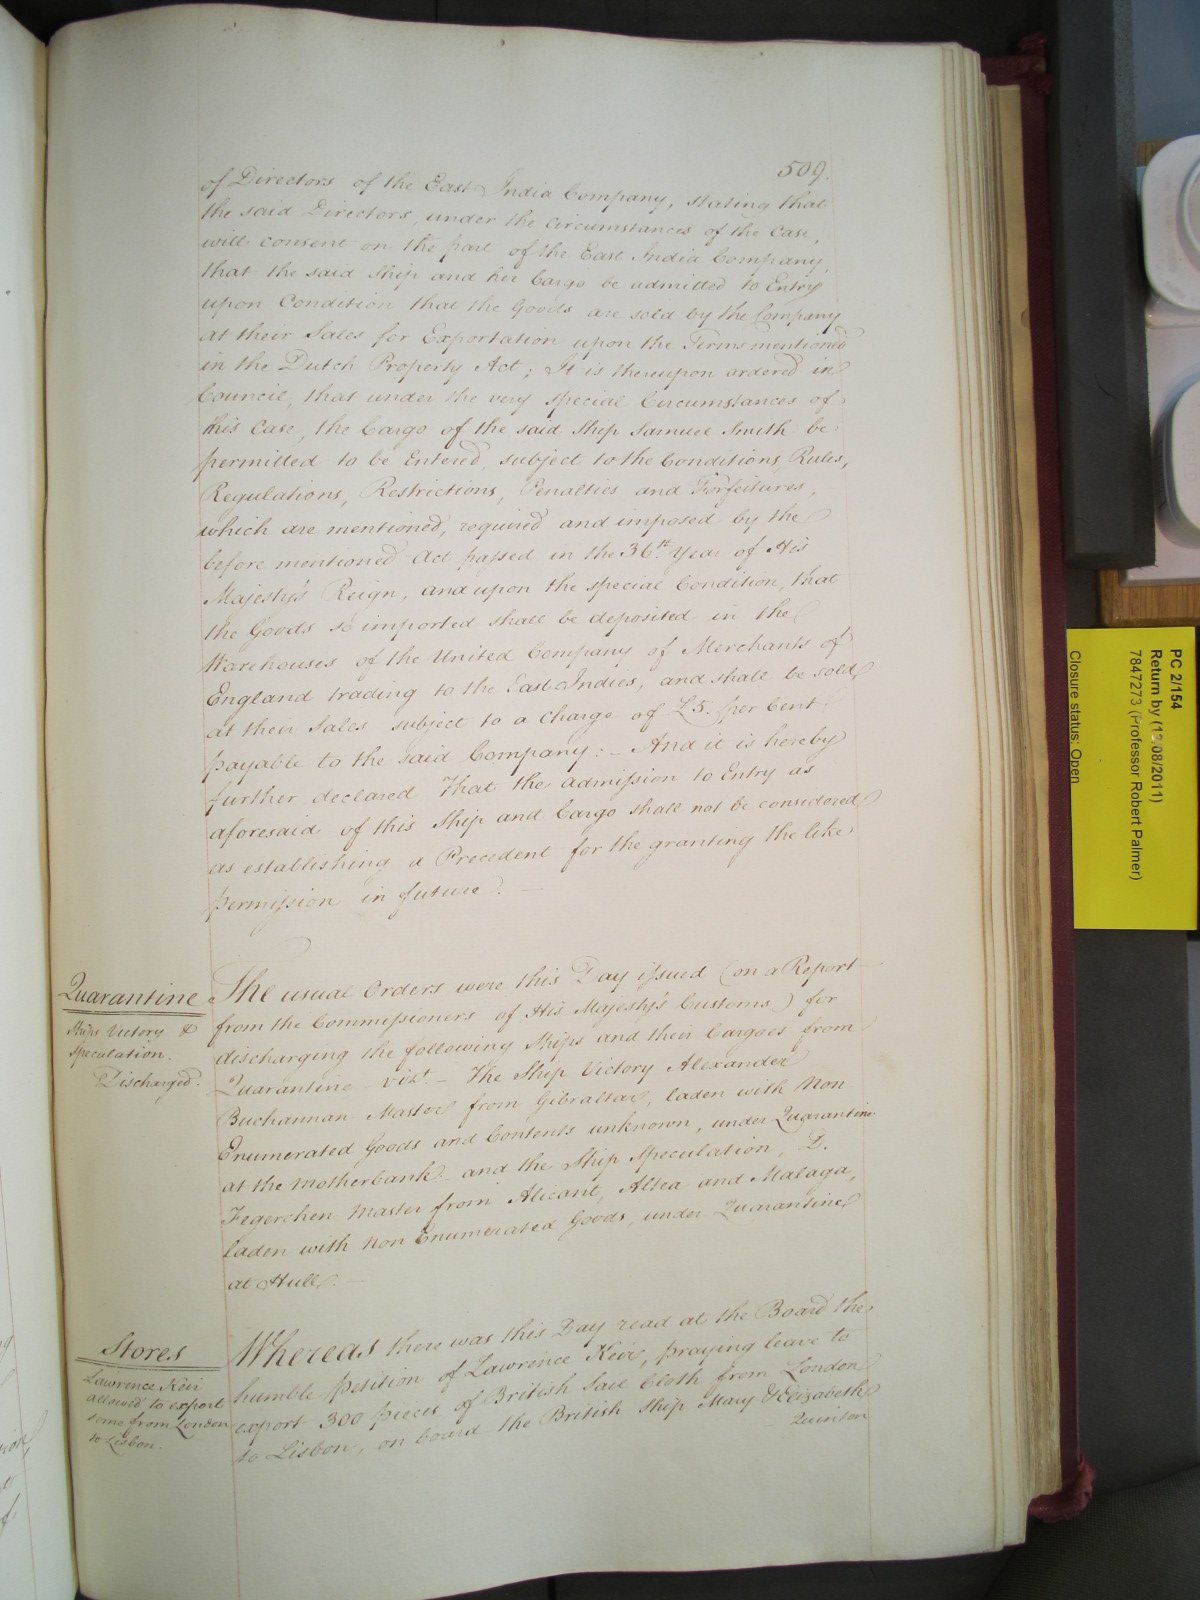 509.
of Directors of the East India Company, stating that
the said Directors, under the circumstances of the Case,
will consent on the part of the East India Company,
that the said Ship and her Cargo be admitted to Entry
upon Condition that the Goods are sold by the Company
at their Sales for Exportation upon the Terms mentioned
in the Dutch Property Act; It is thereupon ordered in
Council, that under the very special Circumstances of
this Case, the Cargo of the said Ship Samuel Smith be
permitted to be Entered, subject to the Conditions, Rules,
Regulations, Restrictions, Penalties and Forfeitures,
which are mentioned, required and imposed by the
before mentioned Act passed in the 36th. Year of His
Majesty's Reign, and upon the special Condition, that
the Goods so imported shall be deposited in the
Warehouses of the United Company of Merchants of
England trading to the East Indies, and shall be sold
at their Sales subject to a Charge of £5. per Cent
payable to the said Company: - And it is hereby
further declared That the admission to Entry as
aforesaid of this Ship and Cargo shall not be considered
as establishing a Precedent for the granting the like
permission in future. -
Quarantine
Ships Victory &
Speculation.
Discharged.
The usual Orders were this Day issued (on a Report
from the Commissioners of His Majesty's Customs) for
discharging the following Ships and their Cargoes from
Quarantine vizt. - The Ship Victory Alexander
Buchannan Master from Gibraltar, laden with Non
Enumerated Goods and Contents unknown, under Quarantine
at the Motherbank. and the Ship Speculation, D.
Fegerchen Master from Alicant, Altea and Malaga,
laden with Non Enumerated Goods, under Quarantine
at Hull. -
Stores
Lawrence Keir
allowed to export
some from London
to Lisbon.
Whereas there was this Day read at the Board the
humble petition of Lawrence Keir, praying leave to
export 300 pieces of British Sail Cloth from London
to Lisbon, on board the British Ship Mary & Elizabeth
Quinton
PC 2/154
Return by (12/08/2011)
7847273 (Professor Robert Palmer)
Closure status: Open